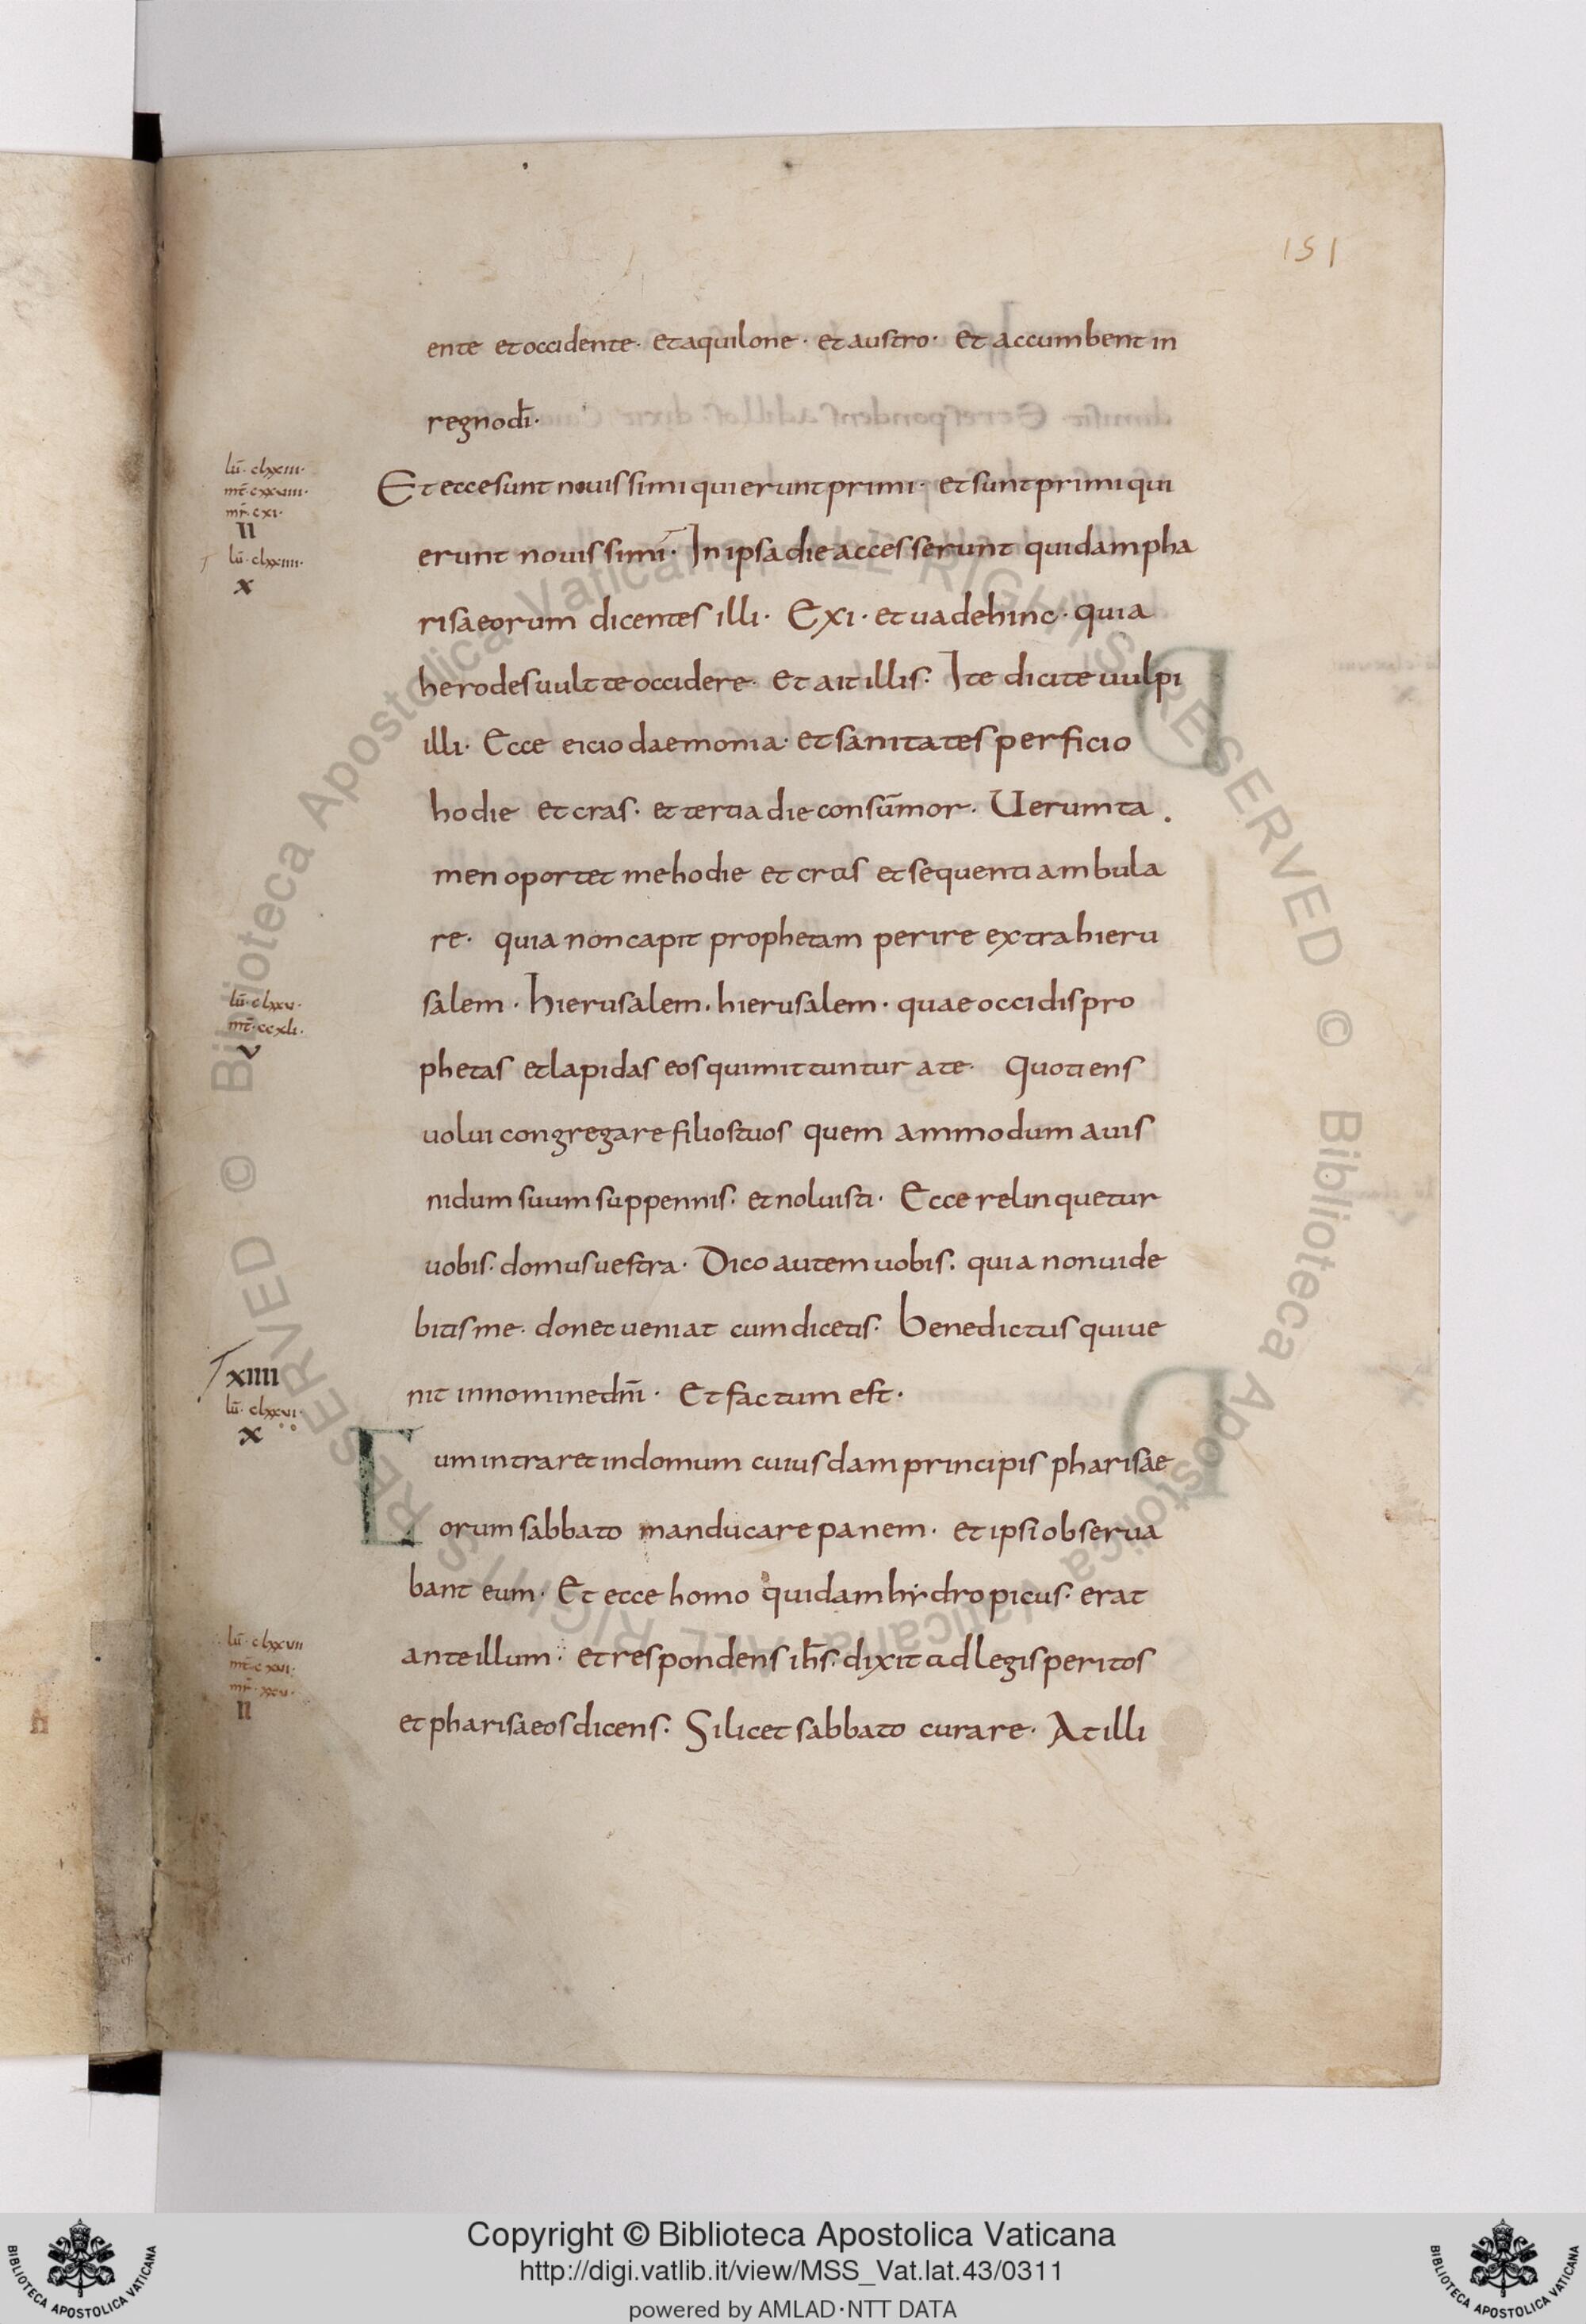 151
ente et occidente· et aquilone· et austro· et accumbent in
regno dī·
lū· clxxiii·
mt̄· cxxviii·
mr̄· cxi·
II
Et ecce sunt nouissimi qui erunt primi· et sunt primi qui
lū· clxxiiii·
x
erunt nouissimi· In ipsa die accesserunt quidam pha
risaeorum dicentes illi· Exi· et uade hinc· quia
herodes uult te occidere· Et ait illis· Ite dicite uulpi
illi· Ecce eicio daemonia· et sanitates perficio
hodie et cras· et tertia die consūmor· Uerum ta
men oportet me hodie et cras et sequenti ambula
re· quia non capit prophetam perire extra hieru
lū· clxxv·
mt̄· ccxli·
v
salem· hierusalem· hierusalem· quae occidis pro
phetas et lapidas eos qui mittuntur a te· Quotiens
uolui congregare filios tuos quem ammodum auis
nidum suum sup pennis· et noluisti· Ecce relinquetur
uobis· domus uestra· Dico autem uobis· quia non uide
bitis me· donec ueniat cum dicetis· benedictus qui ue
nit in nomine dnī· Et factum est·
xiiii
lū· clxxvi·
x
Cum intraret in domum cuiusdam principis pharisae
orum sabbato manducare panem· et ipsi obserua
bant eum· Et ecce homo quidam hydropicus· erat
lū· clxxvii
mt̄· cxvi·
mr̄· xxv·
II
ante illum· et respondens ih̄s· dixit ad legis peritos
et pharisaeos dicens· Si licet sabbato curare· At illi
Copyright © Biblioteca Apostolica Vaticana
http://digi.vatlib.it/view/MSS_Vat.lat.43/0311
powered by AMLAD·NTT DATA
BIBLIOTECA APOSTOLICA VATICANA
BIBLIOTECA APOSTOLICA VATICANA
© Biblioteca Apostolica Vaticana ALL RIGHTS RESERVED © Biblioteca Apostolica Vaticana ALL RIGHTS RESERVED